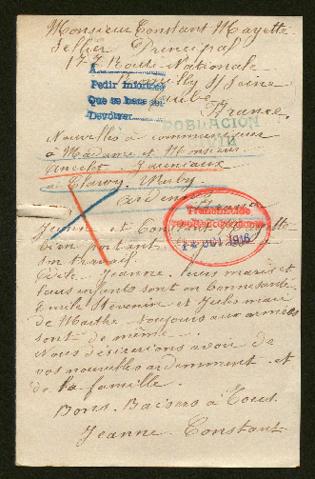 Monsieur Constant Mayette
Sellier Principal
Route Nationale
Romilly S/ Seine
Aube
France
A
Pedir informes
Que se hara
Devolver
POBLACION
CIVIL
Nouvelles à communiquer
à Madame et Monsieur
à
Ardennes
France
Transmitido
14 OCT 1916
Jeanne et Constant Mayette
bien portant
Son travail
Cécile Jeanne leurs maris et
leurs enfants sont en bonne santé
Emile Thévenin et Jules mari
de Marthe toujours aux armées
sont de même
Nous désirerions avoir de
vos nouvelles ardemment et
de la famille.
Bons Baisers à Tous.
Jeanne Constant